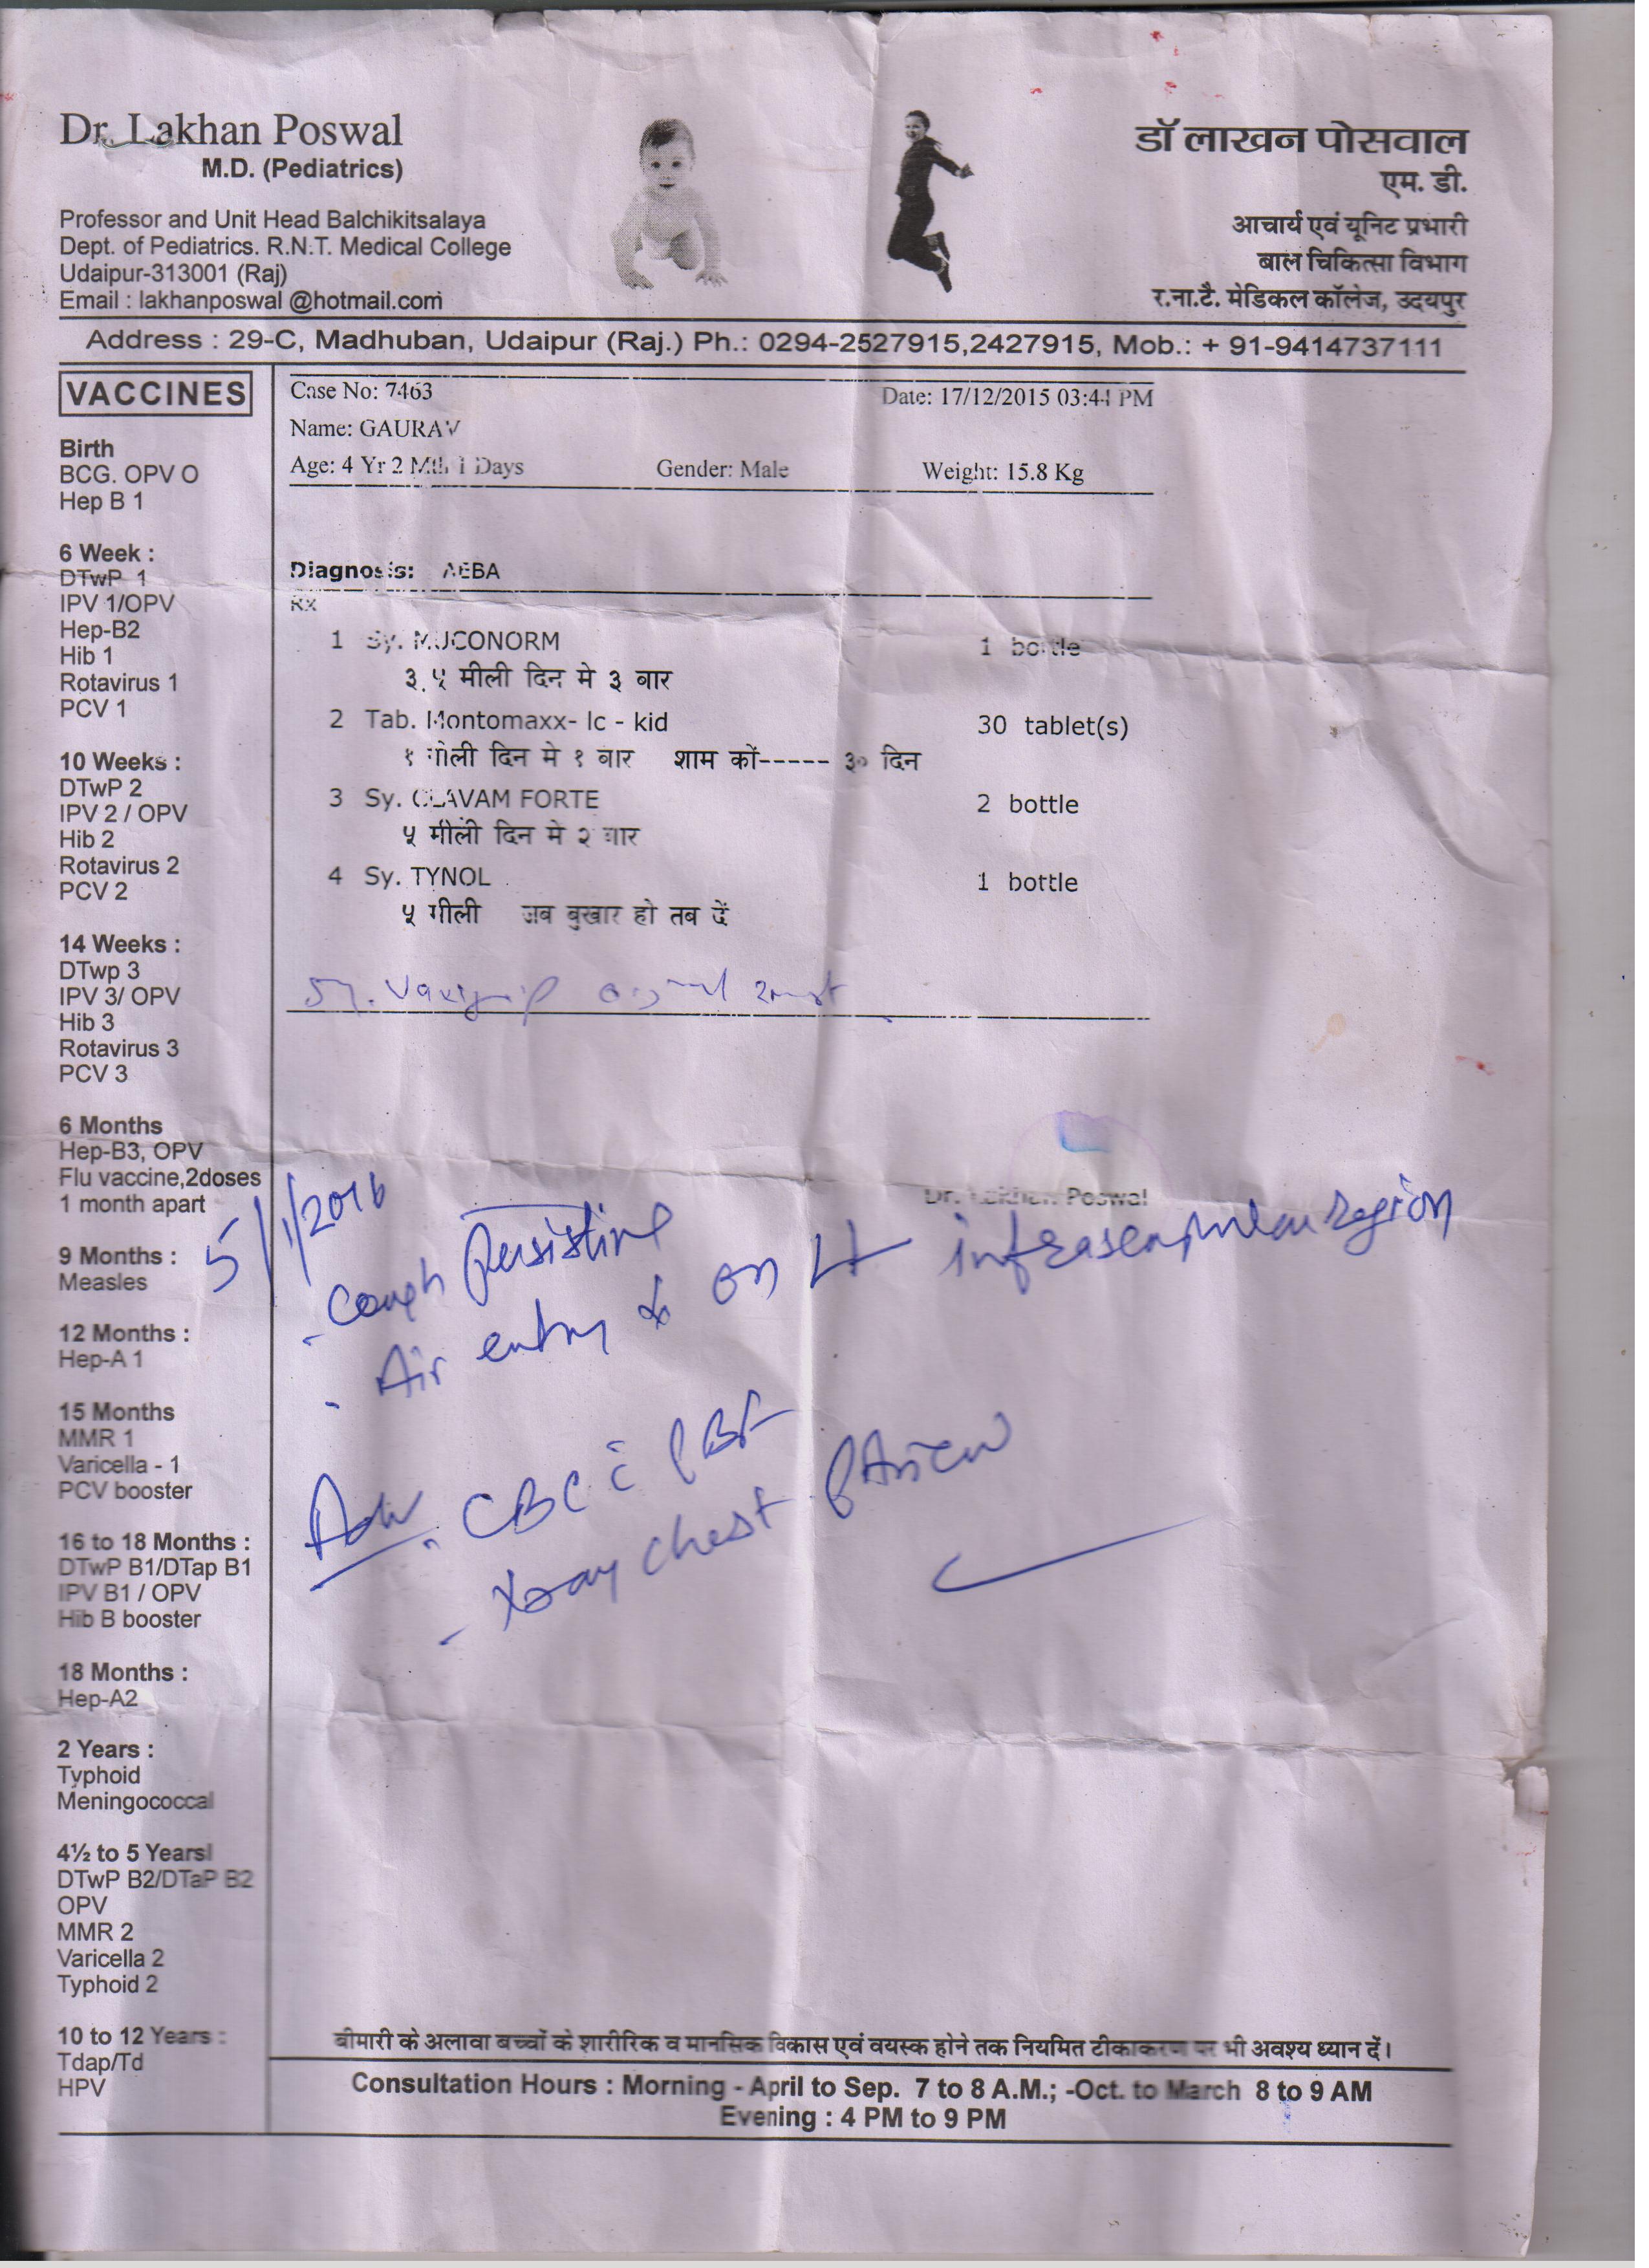 Dr. Lakhan Poswal
M.D. (Pediatrics)
Professor and Unit Head Balchikitsalaya
Dept. of Pediatrics. R.N.T. Medical College
Udaipur-313001 (Raj)
Email : lakhanposwal @hotmail.com
डॉ लाखन पोसवाल
एम. डी.
आचार्य एवं यूनिट प्रभारी
बाल चिकित्सा विभाग
र.ना.टै. मेडिकल कॉलेज, उदयपुर
Address : 29-C, Madhuban, Udaipur (Raj.) Ph.: 0294-2527915,2427915, Mob.: + 91-9414737111
VACCINES
Birth
BCG. OPV O
Hep B 1
6 Week :
DTwP 1
IPV 1/OPV
Hep-B2
Hib 1
Rotavirus 1
PCV 1
10 Weeks :
DTwP 2
IPV 2 / OPV
Hib 2
Rotavirus 2
PCV 2
14 Weeks :
DTwp 3
IPV 3/ OPV
Hib 3
Rotavirus 3
PCV 3
6 Months
Hep-B3, OPV
Flu vaccine,2doses
1 month apart
9 Months :
Measles
12 Months :
Hep-A 1
15 Months
MMR 1
Varicella - 1
PCV booster
16 to 18 Months :
DTwP B1/DTap B1
IPV B1 / OPV
Hib B booster
18 Months :
Hep-A2
2 Years :
Typhoid
Meningococcal
4½ to 5 Years
DTwP B2/DTaP B2
OPV
MMR 2
Varicella 2
Typhoid 2
10 to 12 Years :
Tdap/Td
HPV
Case No: 7463 Date: 17/12/2015 03:44 PM
Name: GAURAV
Age: 4 Yr 2 Mth 1 Days Gender: Male Weight: 15.8 Kg
Diagnosis: AEBA
Rx
1 Sy. MUCONORM 1 bottle
३.५ मीली दिन मे ३ बार
2 Tab. Montomaxx- lc - kid 30 tablet(s)
१ गोली दिन मे १ बार शाम कों----- ३० दिन
3 Sy. CLAVAM FORTE 2 bottle
५ मीली दिन मे २ बार
4 Sy. TYNOL 1 bottle
५ मीली जब बुखार हो तब दें
Sy.
Dr. Lakhan Poswal
5/1/2016
- Cough persisting
- Air entry on Lt infrascapular region
Adv
- CBC c̄ PBF
- Xray chest PA view
बीमारी के अलावा बच्चों के शारीरिक व मानसिक विकास एवं वयस्क होने तक नियमित टीकाकरण पर भी अवश्य ध्यान दें।
Consultation Hours : Morning - April to Sep. 7 to 8 A.M.; -Oct. to March 8 to 9 AM
Evening : 4 PM to 9 PM